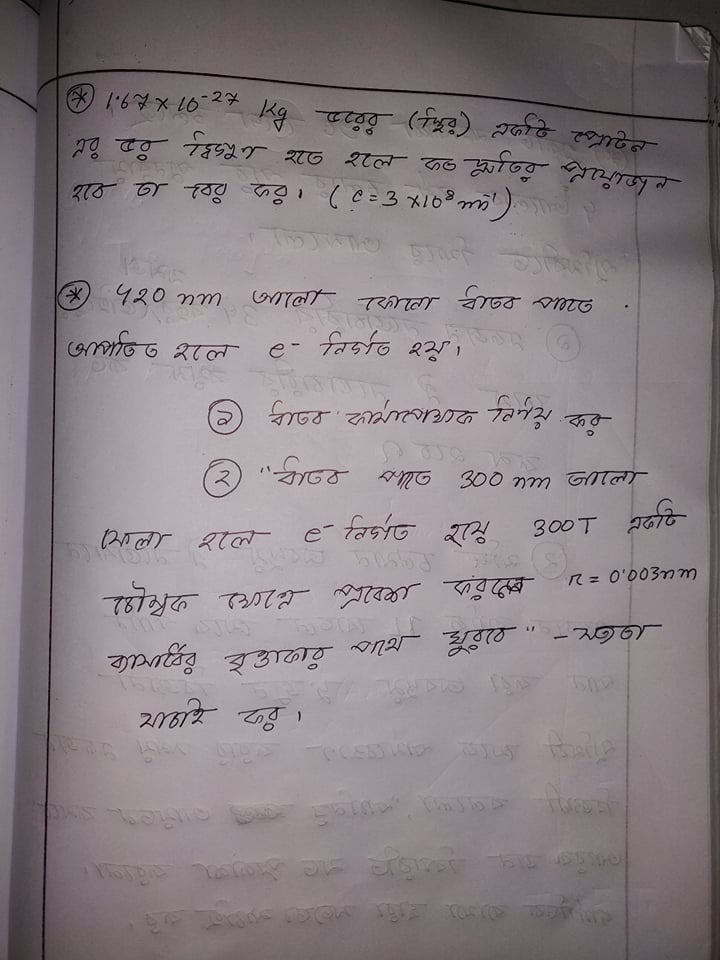 * 1.67×10⁻²⁷ kg ভরের (স্থির) একটি প্রোটন
এর ভর দ্বিগুণ হতে হলে কত দ্রুতির প্রয়োজন
হবে তা বের কর। (c = 3×10⁸ ms⁻¹)
* 420 nm আলো কোনো ধাতব পাতে
আপতিত হলে e⁻ নির্গত হয়।
১ ধাতব কার্যাপেক্ষক নির্ণয় কর
২ "ধাতব পাতে 300 nm আলো
ফেলা হলে e⁻ নির্গত হয়ে 300T একটি
চৌম্বক ক্ষেত্রে প্রবেশ করলে r = 0.003nm
ব্যাসার্ধের বৃত্তাকার পথে ঘুরবে" – সত্যতা
যাচাই কর।